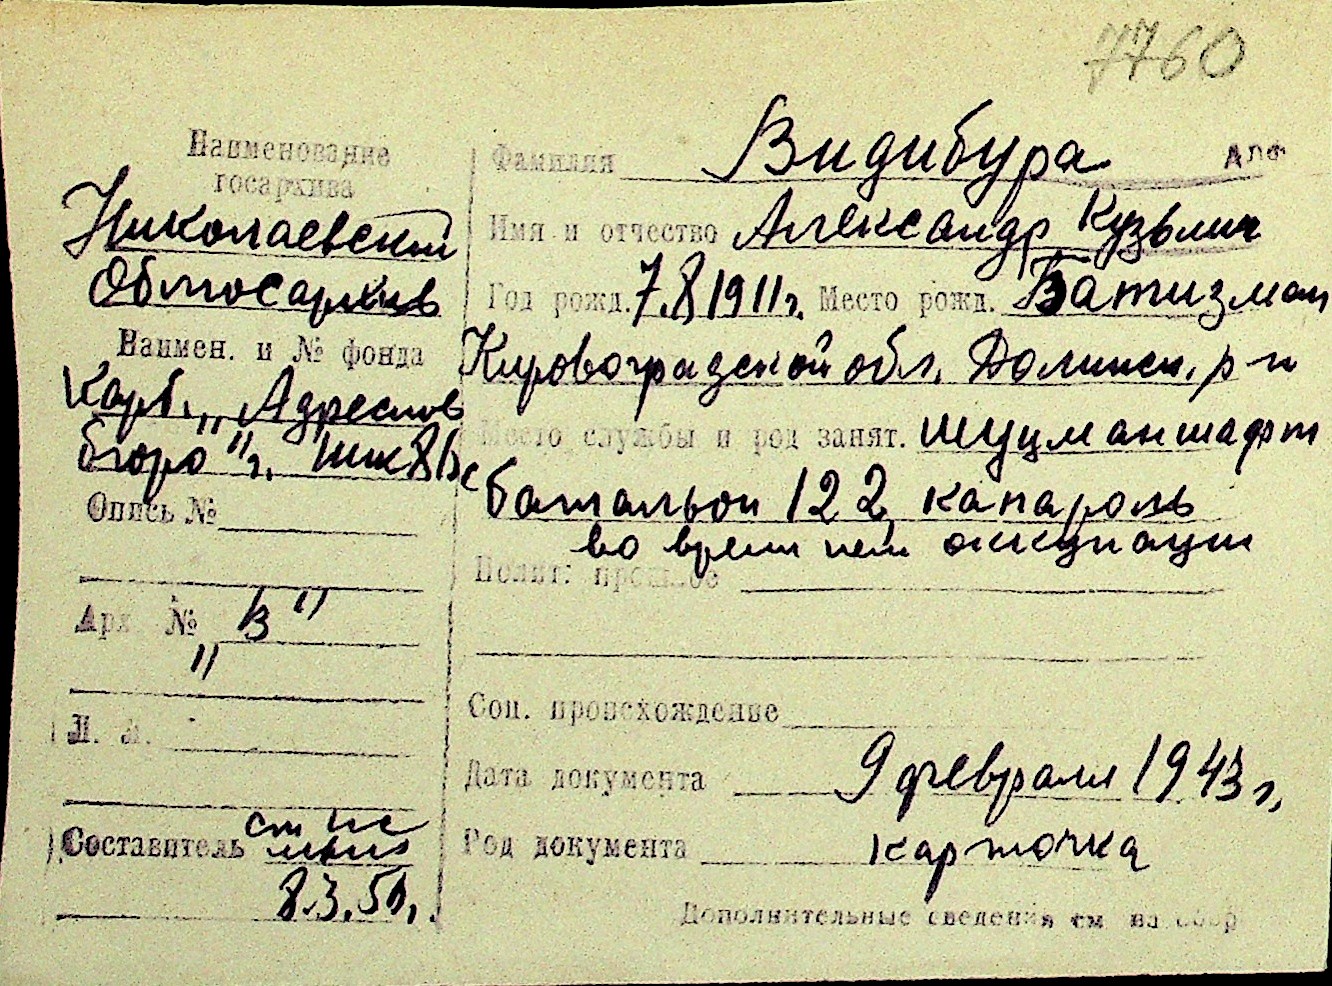 7760
Наименование
госархива
Николаевский
Облгосархив
Наимен. и № фонда
Карт. "Адресное
бюро" г.
Опись №
Арх. № "В"
Л. л.
Составитель
8.3.50г.
Фамилия Видибура Алф
Имя и отчество Александр Кузьмич
Год рожд. 7.8 1911г. Место рожд. Батизман
Кировоградской обл. Долинск. р-н
Место службы и род занят. шуцманшафт
батальон 122, капароль
во время нем оккупации
Полит. прошлое
Соц. происхождение
Дата документа 9 февраля 1943 г.
Род документа карточка
Дополнительные сведения см на обор